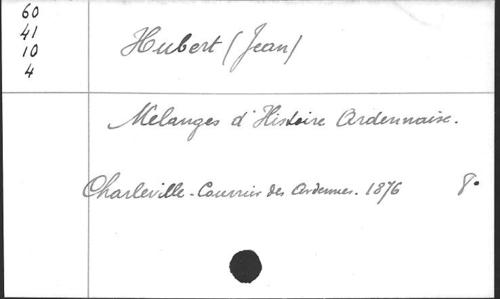 60
41
10
4
Hubert (Jean)
Mélanges d'Histoire Ardennaise.
Charleville - Courrier des Ardennes. 1876 8°